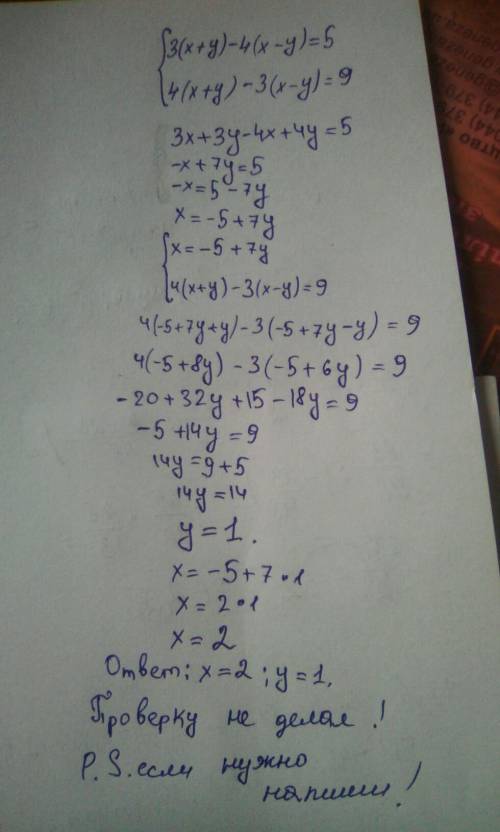 {3(x+y)-4(x-y)=5
{4(x+y)-3(x-y)=9
3x+3y-4x+4y=5
-x+7y=5
-x=5-7y
x=-5+7y
{x=-5+7y
{4(x+y)-3(x-y)=9
4(-5+7y+y)-3(-5+7y-y)=9
4(-5+8y)-3(-5+6y)=9
-20+32y+15-18y=9
-5+14y=9
14y=9+5
14y=14
y=1.
x=-5+7•1
x=2•1
x=2
Ответ: x=2; y=1.
Проверку не делал!
P.S. если нужно
напиши!